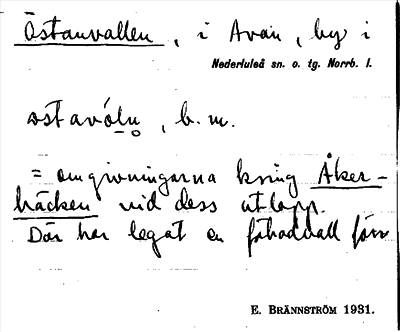 Östanvallen, i Avan, by i
Nederluleå sn. o. tg. Norrb. l.
ostavóln, b. m.
= omgivningarna kring Åker-
bäcken vid dess utlopp.
Där har legat en fäbodvall förr
E. BRÄNNSTRÖM 1931.